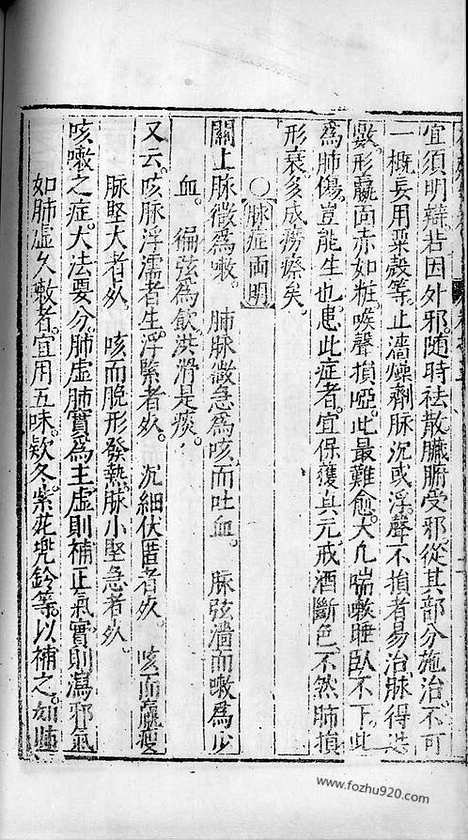 宜須明辯若因外邪隨時祛散臟腑受邪從其部分施治不可
一槩長用粟殼等止濇燥劑脉沉或浮聲不損者易治脉得洪
數形羸面赤如粧喉聲損啞此最難愈大凡喘嗽睡臥不下此
為肺傷豈能生也患此症者宜保獲真元戒酒斷色不然肺損
形衰多成癆瘵矣
〇脉症両明
關上脉微為嗽　肺脉微急為咳而吐血　脉弦濇而嗽為少
血　偏弦為飲洪滑是痰
又云咳脉浮濡者生浮緊者死　沉細伏匿者死　咳而羸瘦
脉堅大者死　咳而脫形發熱脉小堅急者死
咳嗽之症大法要分肺虛肺實為主虛則補正氣實則瀉邪氣
如肺虛久嗽者宜用五味欵冬紫花兜鈴等以補之如肺
www.fozhu920.com